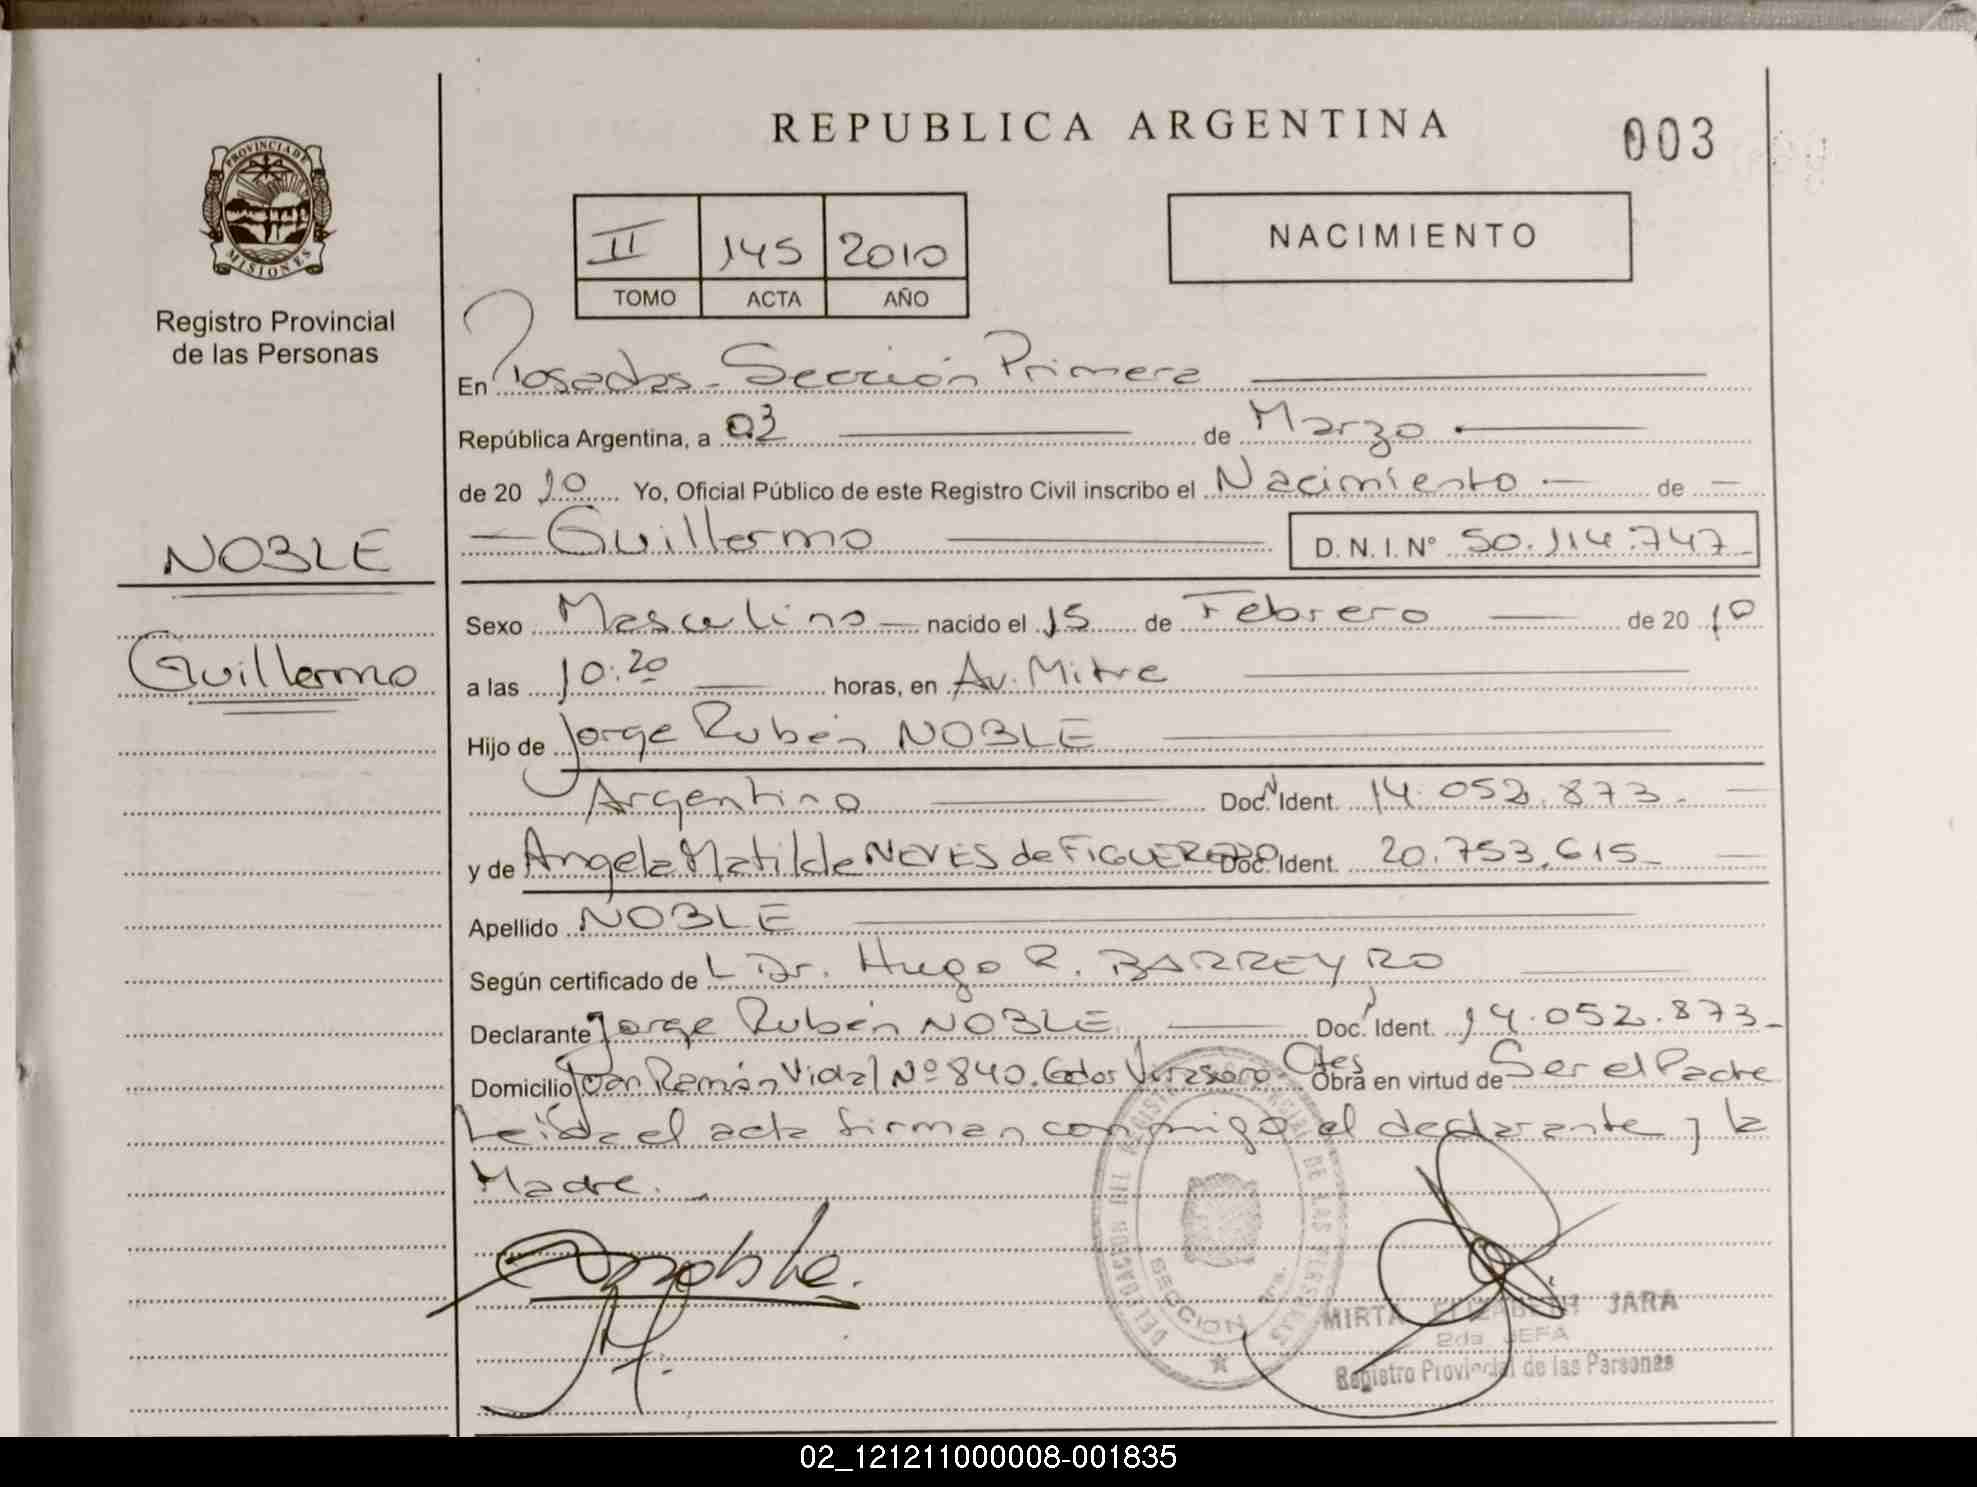 REPUBLICA ARGENTINA
003
PROVINCIA DE
MISIONES
Registro Provincial
de las Personas
II 145 2010
TOMO ACTA AÑO
NACIMIENTO
En Posadas - Sección Primera
República Argentina, a 03 de Marzo
de 2010 Yo, Oficial Público de este Registro Civil inscribo el Nacimiento de
Guillermo D. N. I. Nº 50.114.747
NOBLE
Guillermo
Sexo Masculino nacido el 15 de Febrero de 2010
a las 10:20 horas, en Av. Mitre
Hijo de Jorge Rubén NOBLE
Argentino Doc. Ident. 14.052.873.
y de Angela Matilde NEVES de FIGUEREDO Doc. Ident. 20.753.615
Apellido NOBLE
Según certificado de L Dr. Hugo R. BARREYRO
Declarante Jorge Rubén NOBLE Doc. Ident. 14.052.873
Domicilio Juan Ramón Vidal Nº 840. Gdor Virasoro Ctes Obra en virtud de Ser el Padre
Leida el acta firman conmigo el declarante y la
Madre.
SECCION
MIRTA ELIZABETH JARA
2da JEFA
Registro Provincial de las Personas
02_121211000008-001835